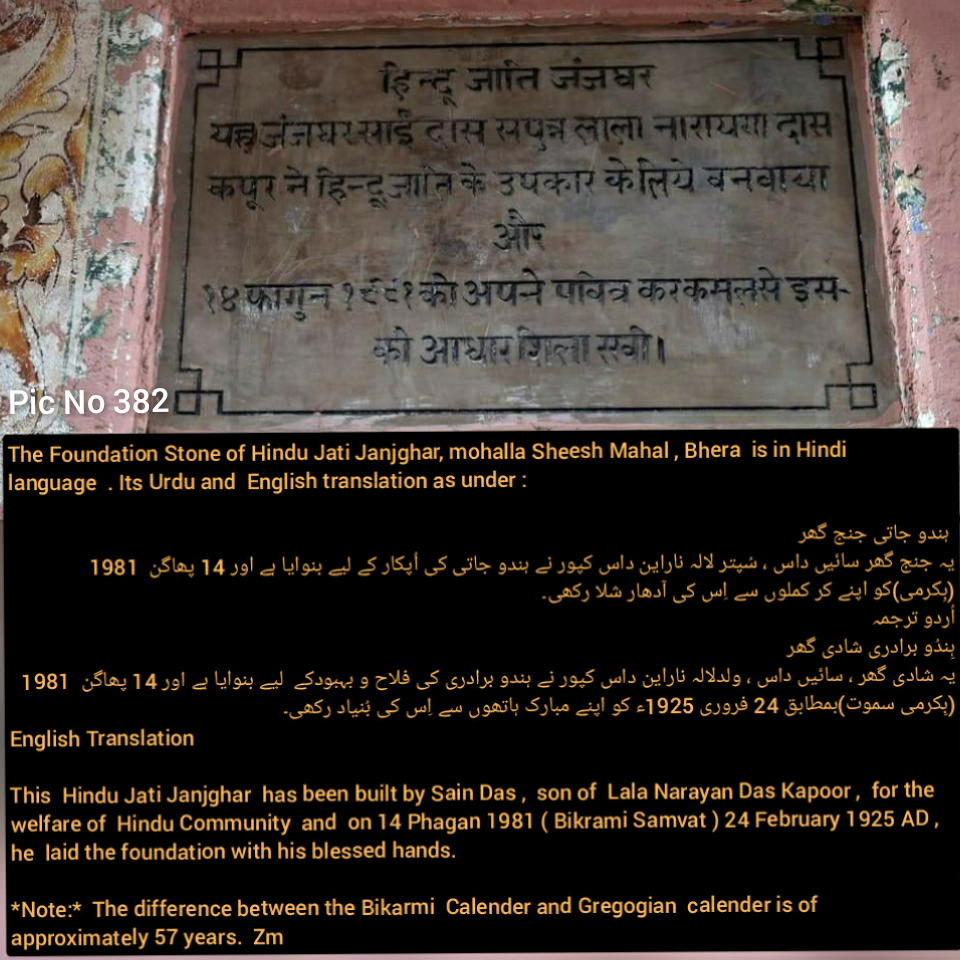 हिन्दू जाति जंजघर
यह जंजघर साईं दास सपुत्र लाला नारायण दास
कपूर ने हिन्दू जाति के उपकार के लिये बनवाया
और
१४ फागुन १९८१ को अपने पवित्र करकमल से इस-
की आधार शिला रखी।
Pic No 382
The Foundation Stone of Hindu Jati Janjghar, mohalla Sheesh Mahal , Bhera is in Hindi
language . Its Urdu and English translation as under :
ہندو جاتی جنج گھر
یہ جنج گھر سائیں داس ، سُپتر لالہ ناراین داس کپور نے ہندو جاتی کی اُپکار کے لیے بنوایا ہے اور 14 پھاگن 1981
(بِکرمی)کو اپنے کر کملوں سے اِس کی آدھار شلا رکھی۔
اُردو ترجمہ
ہِندُو برادری شادی گھر
یہ شادی گھر ، سائیں داس ، ولدلالہ ناراین داس کپور نے ہندو برادری کی فلاح و بہبودکے لیے بنوایا ہے اور 14 پھاگن 1981
(بِکرمی سموت)بمطابق 24 فروری 1925ء کو اپنے مبارک ہاتھوں سے اِس کی بُنیاد رکھی۔
English Translation
This Hindu Jati Janjghar has been built by Sain Das , son of Lala Narayan Das Kapoor , for the
welfare of Hindu Community and on 14 Phagan 1981 ( Bikrami Samvat ) 24 February 1925 AD ,
he laid the foundation with his blessed hands.
*Note:* The difference between the Bikarmi Calender and Gregogian calender is of
approximately 57 years. Zm